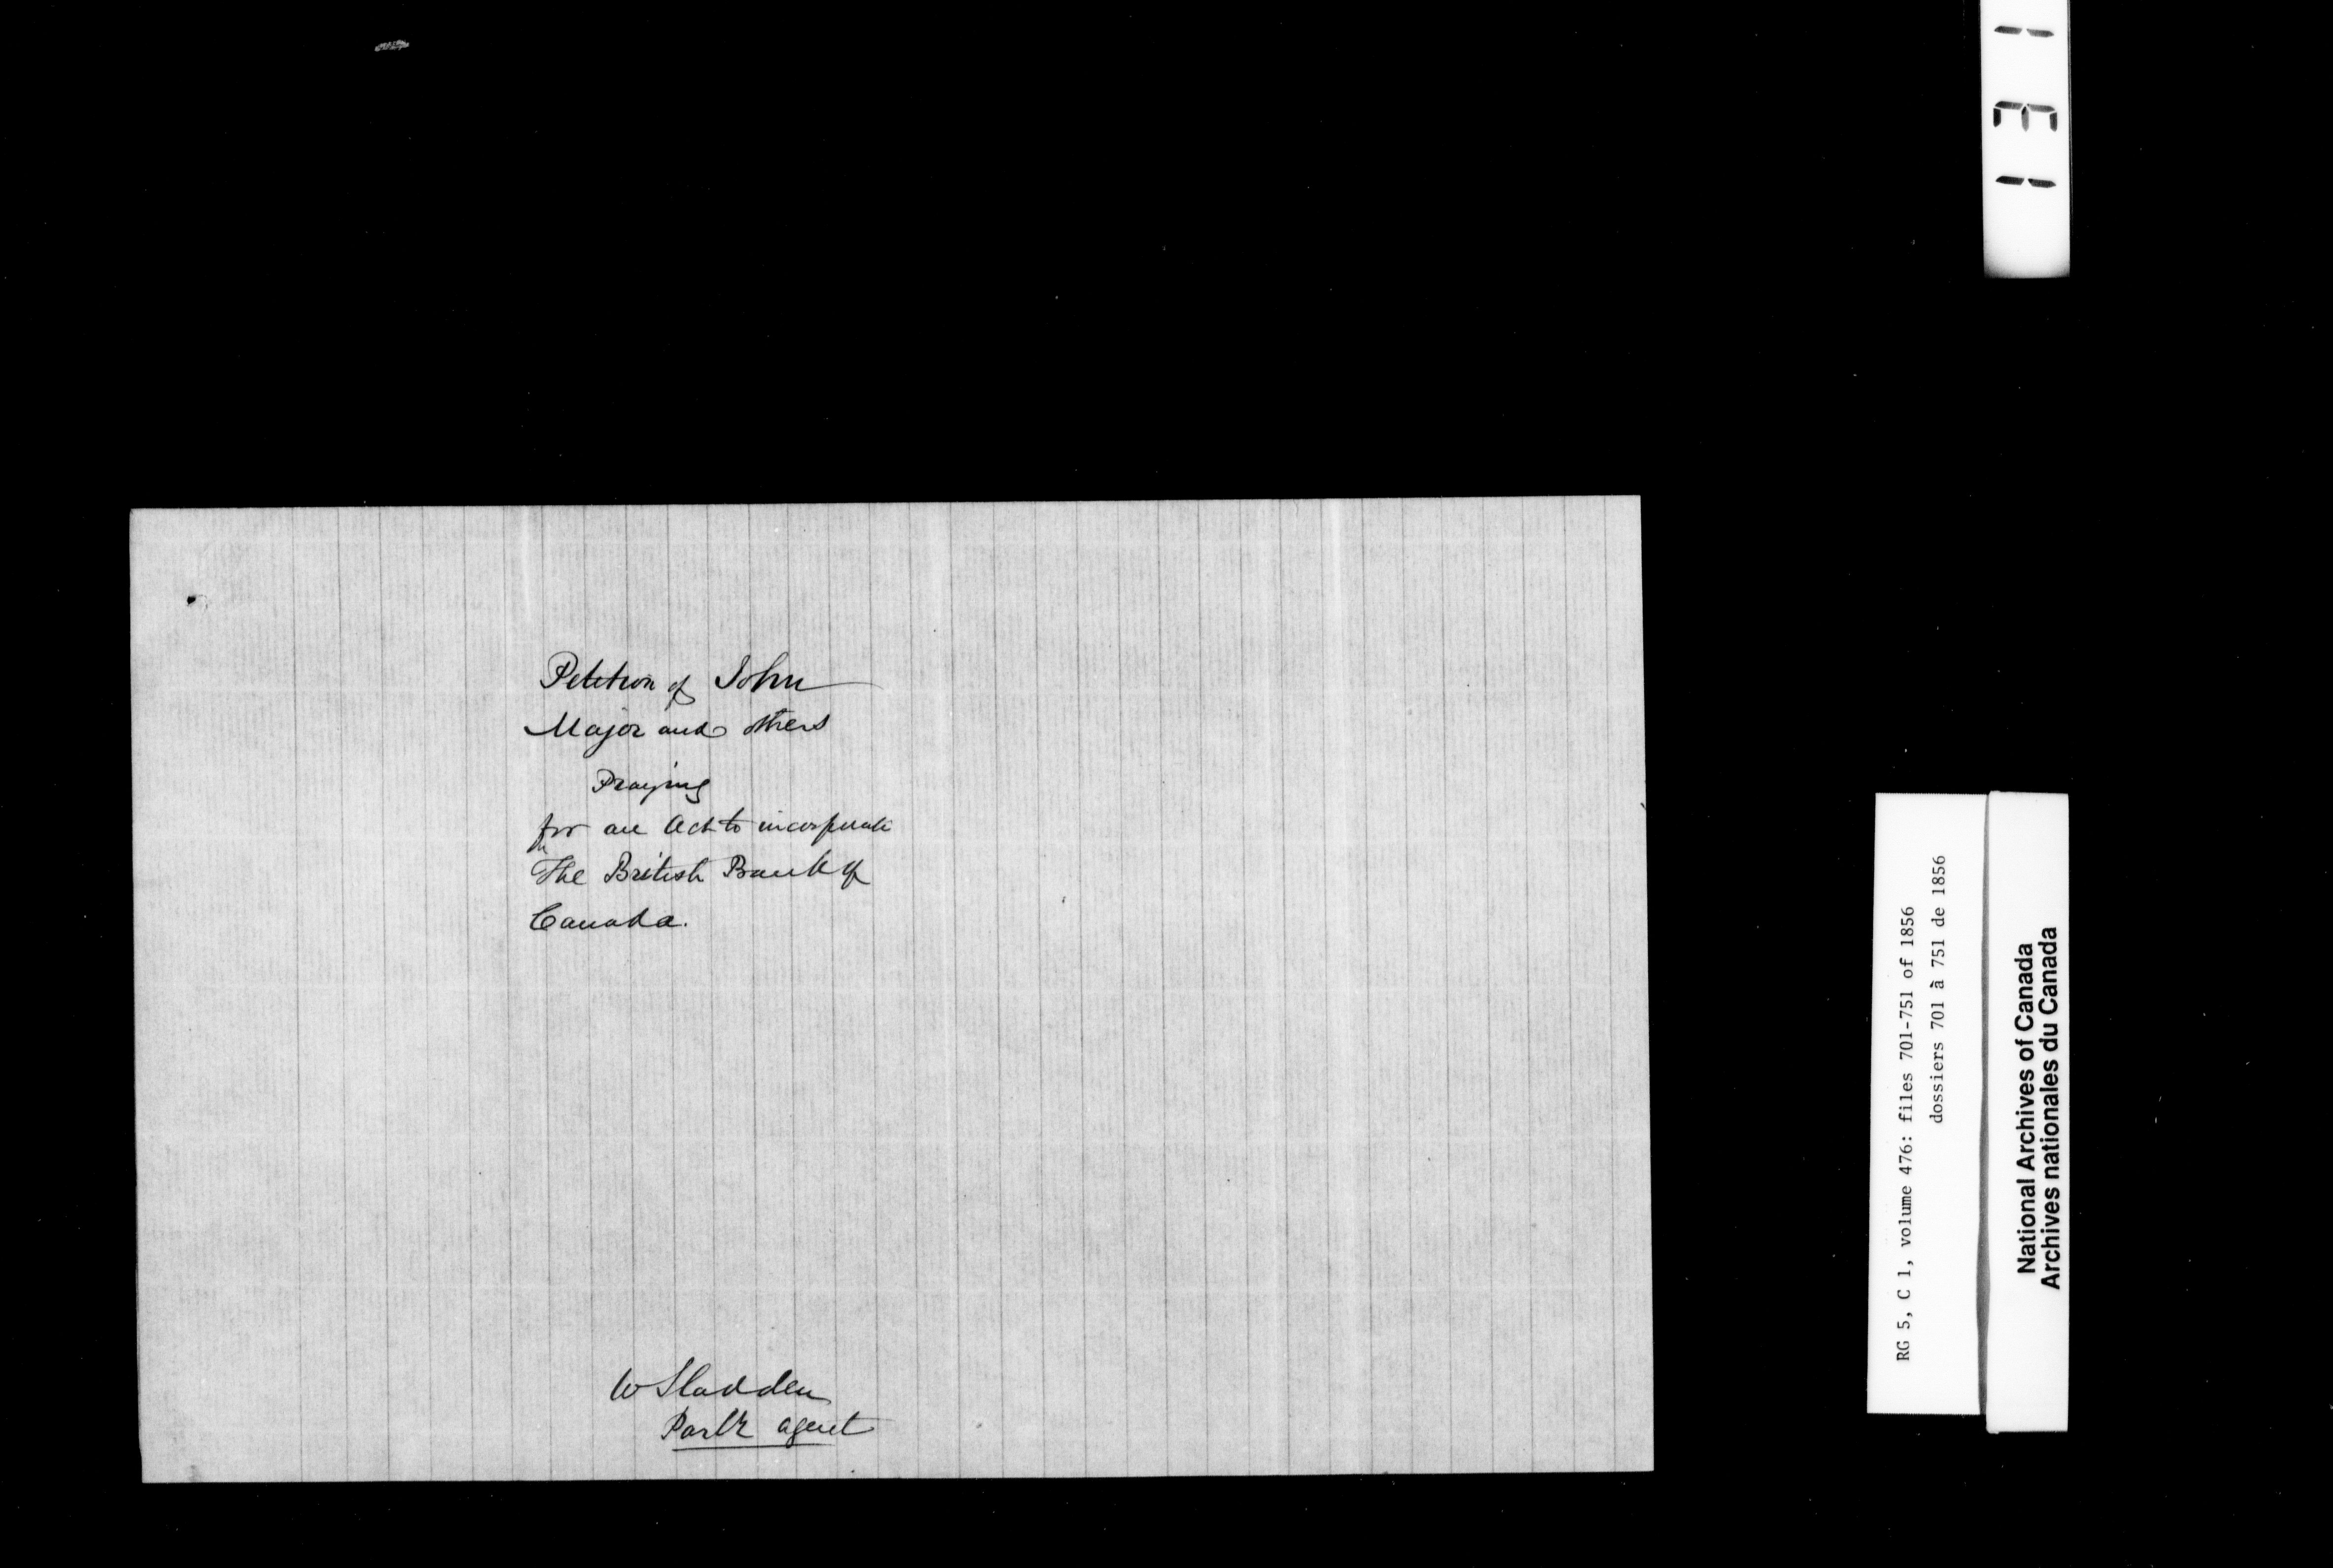 Petition of John
Major and others
Praying
for an Act to incorporate
The British Bank of
Canada.
W Sladden
Parlr agent
131
RG 5, C 1, volume 476: files 701-751 of 1856
dossiers 701 à 751 de 1856
National Archives of Canada
Archives nationales du Canada